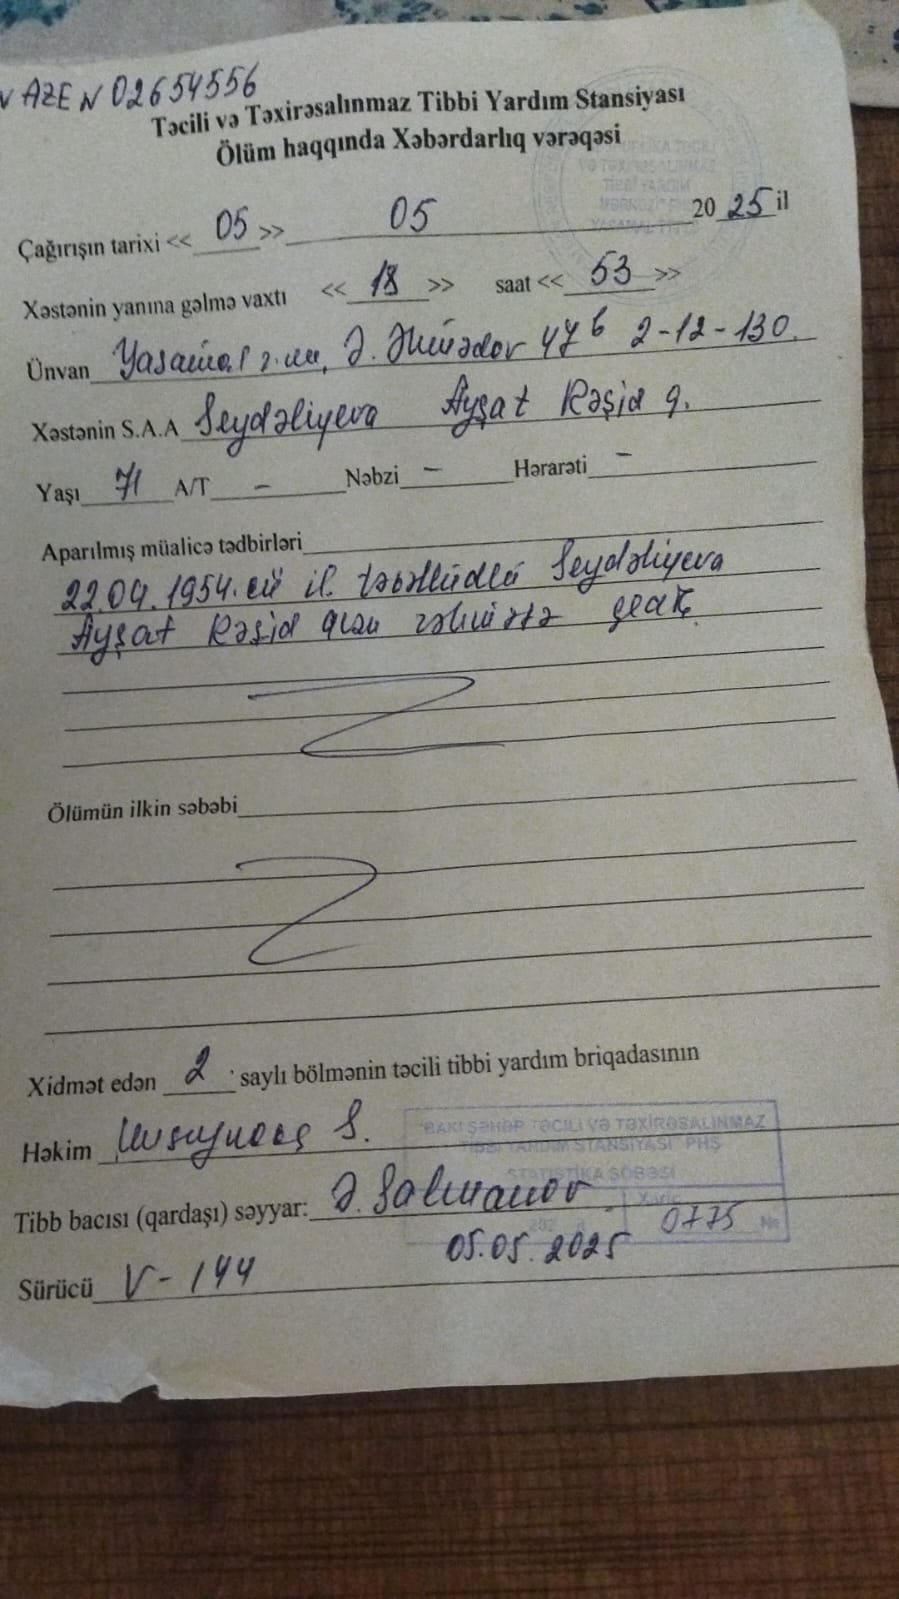 AZE N 02654556
Təcili və Təxirəsalınmaz Tibbi Yardım Stansiyası
Ölüm haqqında Xəbərdarlıq vərəqəsi
Çağırışın tarixi << 05 >> 05 20 25 il
Xəstənin yanına gəlmə vaxtı << 18 >> saat << 53 >>
Ünvan Yasamal Ə. 47b 2-12-130.
Xəstənin S.A.A Seydəliyeva Ayşat Rəşid q.
Yaşı 71 A/T - Nəbzi - Hərarəti -
Aparılmış müalicə tədbirləri
22.04.1954.cü il təvəllüdlü Seydəliyeva
Ayşat Rəşid qızı
Ölümün ilkin səbəbi
Xidmət edən 2 saylı bölmənin təcili tibbi yardım briqadasının
Həkim S.
BAKI ŞƏHƏR TƏCİLİ VƏ TƏXİRƏSALINMAZ
TİBBİ YARDIM STANSİYASI PHŞ
STATİSTİKA ŞÖBƏSİ
Tibb bacısı (qardaşı) səyyar: Ə. Salmanov
0775 №
05.05.2025
Sürücü V-144